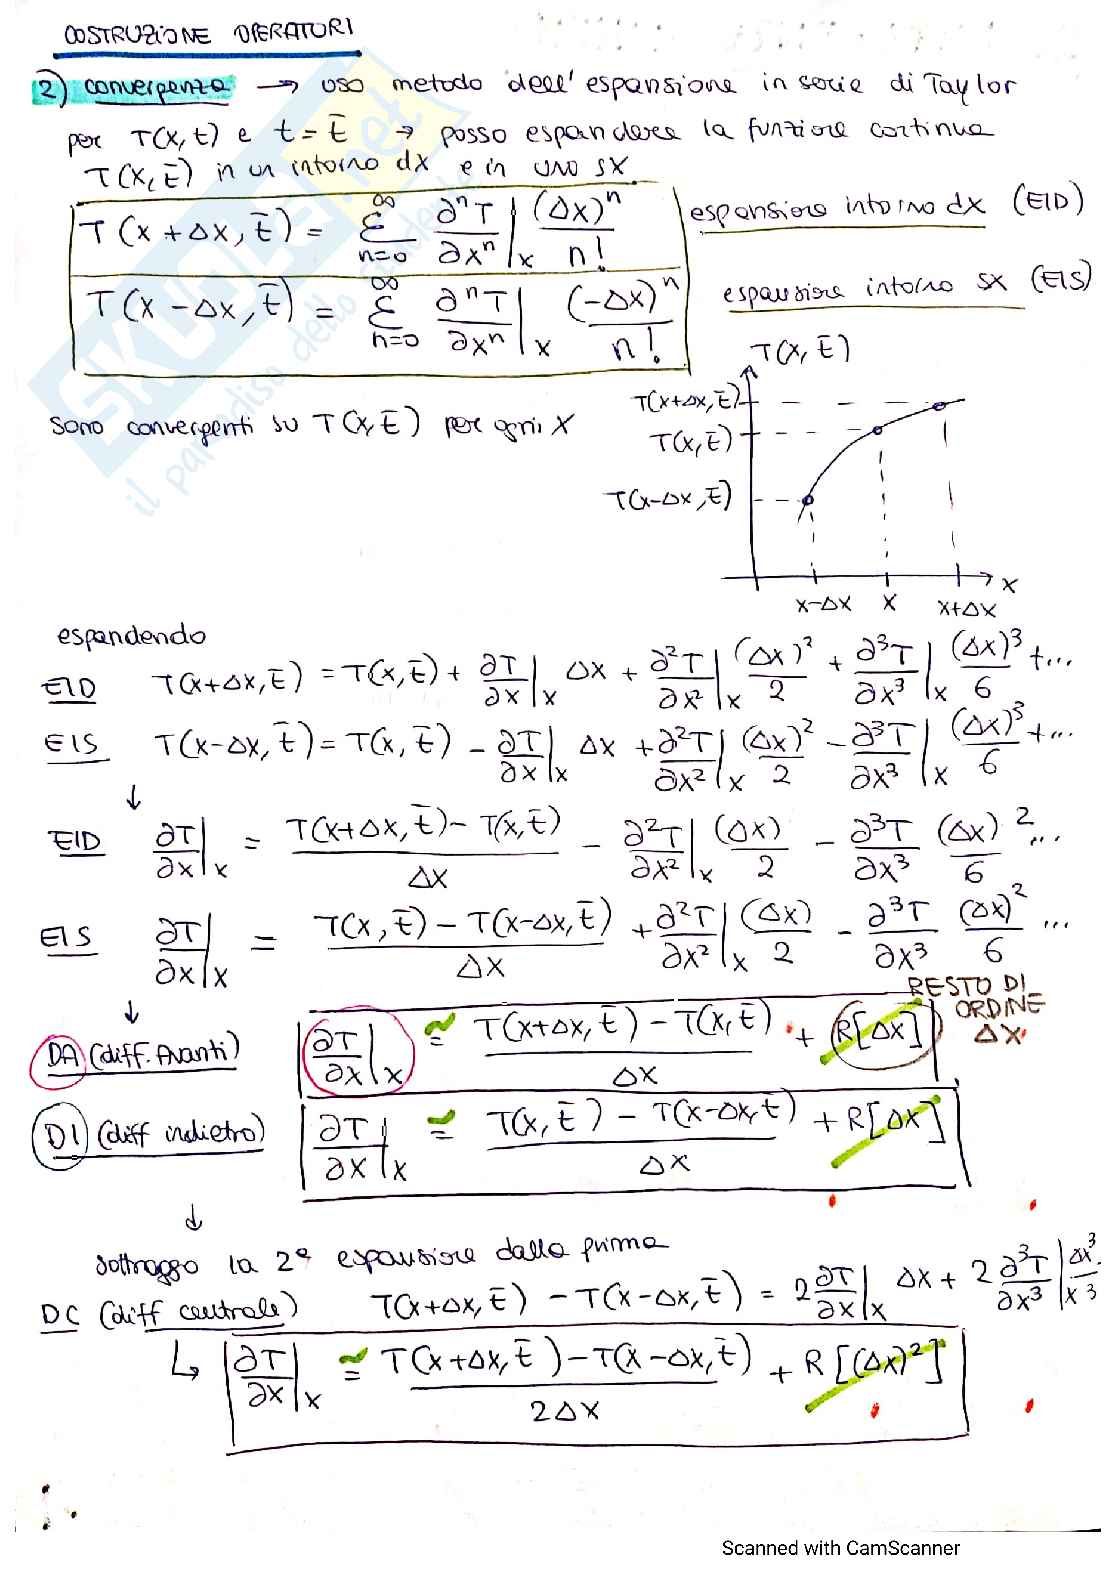 COSTRUZIONE OPERATORI
2) convergenza → uso metodo dell'espansione in serie di Taylor
per T(x,t) e t = t̄ → posso espandere la funzione continua
T(x,t̄) in un intorno dx e in uno sx
T(x+Δx, t̄) = Σ_{n=0}^{∞} ∂ⁿT/∂xⁿ|x (Δx)ⁿ/n! espansione intorno dx (EID)
T(x-Δx, t̄) = Σ_{n=0}^{∞} ∂ⁿT/∂xⁿ|x (-Δx)ⁿ/n! espansione intorno sx (EIS)
sono convergenti su T(x,t̄) per ogni x
T(x,t̄)
T(x+Δx,t̄)
T(x,t̄)
T(x-Δx,t̄)
x-Δx x x+Δx x
espandendo
EID T(x+Δx,t̄) = T(x,t̄) + ∂T/∂x|x Δx + ∂²T/∂x²|x (Δx)²/2 + ∂³T/∂x³|x (Δx)³/6 + ...
EIS T(x-Δx,t̄) = T(x,t̄) - ∂T/∂x|x Δx + ∂²T/∂x²|x (Δx)²/2 - ∂³T/∂x³|x (Δx)³/6 + ...
↓
EID ∂T/∂x|x = T(x+Δx,t̄) - T(x,t̄)/Δx - ∂²T/∂x²|x (Δx)/2 - ∂³T/∂x³ (Δx)²/6 ...
EIS ∂T/∂x|x = T(x,t̄) - T(x-Δx,t̄)/Δx + ∂²T/∂x²|x (Δx)/2 - ∂³T/∂x³ (Δx)²/6 ...
↓
RESTO DI
ORDINE
Δx
DA (diff. Avanti) ∂T/∂x|x ≅ T(x+Δx,t̄) - T(x,t̄)/Δx + R[Δx]
DI (diff indietro) ∂T/∂x|x ≅ T(x,t̄) - T(x-Δx,t)/Δx + R[Δx]
↓
sottraggo la 2ª espansione dalla prima
DC (diff centrale) T(x+Δx,t̄) - T(x-Δx,t̄) = 2 ∂T/∂x|x Δx + 2 ∂³T/∂x³|x Δx³/3
↳ ∂T/∂x|x ≅ T(x+Δx,t̄) - T(x-Δx,t̄)/2Δx + R[(Δx)²]
SKUOLA.net
il paradiso dello studente
Scanned with CamScanner